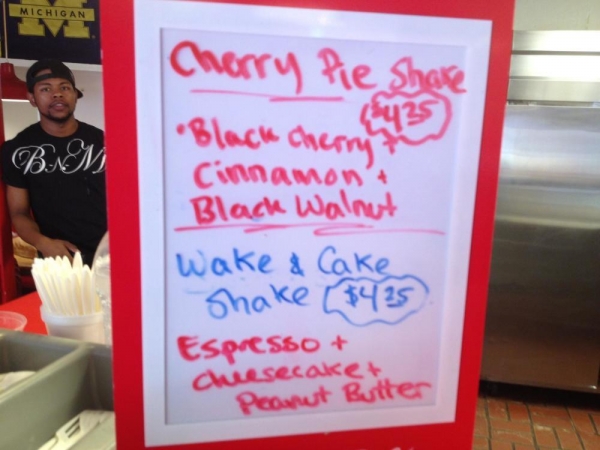 MICHIGAN
M
BNM
Cherry Pie Shake
$4.25
• Black Cherry +
Cinnamon +
Black Walnut
Wake & Cake
Shake $4.25
Espresso +
cheesecake +
Peanut Butter